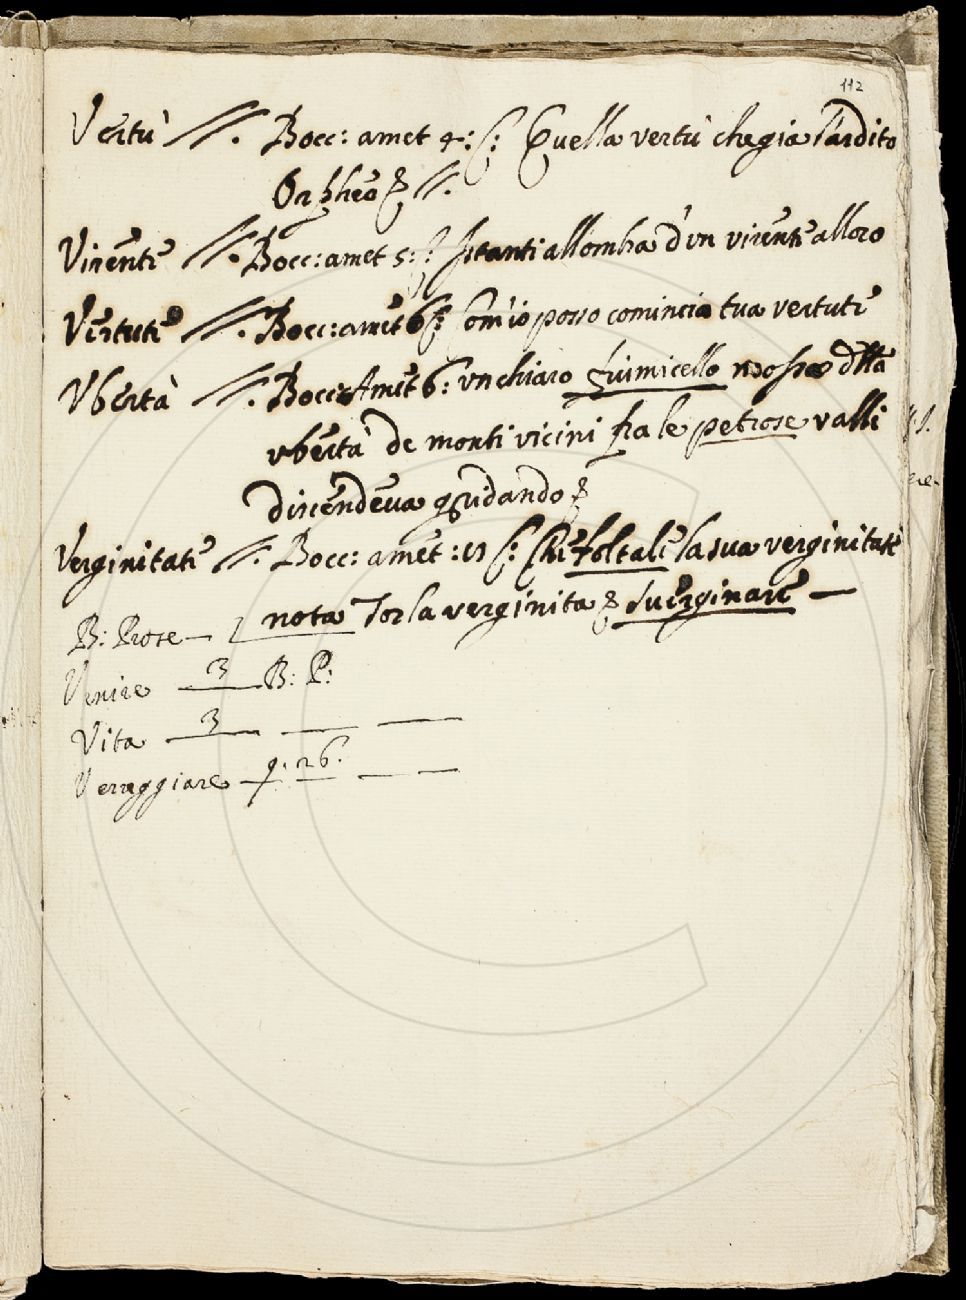 112
Vertù //. Bocc: amet 4: s: Quella vertù che già l'ardito
Orpheo &//.
Virente //. Bocc: amet 5: s: stanti all ombra d'un virente alloro
Vertute //. Bocc: amet 6 s: Com'io posso comincia tua vertute
Vbertà //. Bocc: Amet 6: vn chiaro fiumicello mosso dlla
vbertà de monti vicini fra le petrose valli
discendeua guidando &
Verginitate //. Bocc: amet: 15 s: Chi tolta le la sua verginitate
nota Tor la verginita & suerginare —
B: Prose —
Venire 3 B: P:
Vita 3 — —
Veraggiare — 4. 26. — —